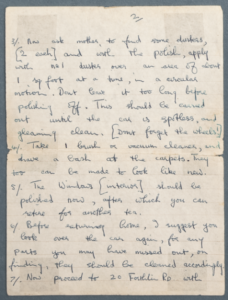 2/
3/. Now ask mother, to find some dusters,
[2 each] and with the polish, apply
with no1 duster over an area of about
1 sq foot at a time, in a circular
motion. Don't leave it too long before
polishing off. This should be carried
out until the car is spotless, and
gleaming clean. [Dont forget the wheels]
4/. Take 1 brush or vacuum cleaner, and
have a bash at the carpets, they
too can be made to look like new.
5/. The Windows [interior] should be
polished now, after which you can
retire for another tea.
6/. Before returning home, I suggest you
look over the car again, for any
parts you may have missed out, on
finding, they should be cleaned accordingly
7/. Now proceed to 20 Forthlin Rd with